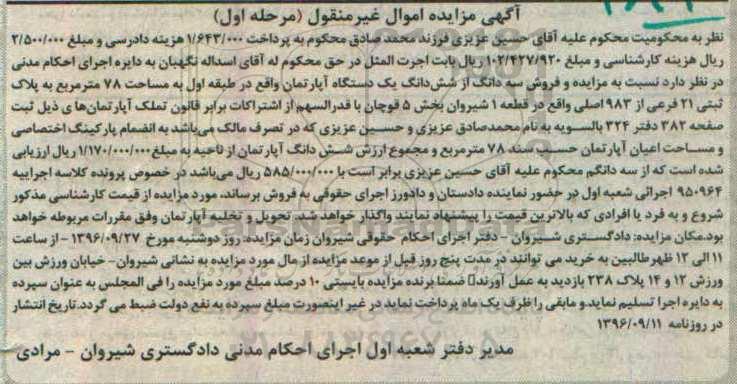 آگهی مزایده اموال غیرمنقول (مرحله اول)
نظر به محکومیت محکوم علیه آقای حسین عزیزی فرزند محمد صادق محکوم به پرداخت ۱/۶۴۳/۰۰۰ هزینه دادرسی و مبلغ ۲/۵۰۰/۰۰۰
ریال هزینه کارشناسی و مبلغ ۱۰۲/۴۲۷/۹۲۰ ریال بابت اجرت المثل در حق محکوم له آقای اسداله نگهبان به دایره اجرای احکام مدنی
در نظر دارد نسبت به مزایده و فروش سه دانگ از شش‌دانگ یک دستگاه آپارتمان واقع در طبقه اول به مساحت ۷۸ مترمربع به پلاک
ثبتی ۲۱ فرعی از ۹۸۳ اصلی واقع در قطعه ۱ شیروان بخش ۵ قوچان با قدرالسهم از اشتراکات برابر قانون تملک آپارتمان‌ها ی ذیل ثبت
صفحه ۳۸۲ دفتر ۳۲۴ بالسویه به نام محمدصادق عزیزی و حسین عزیزی که در تصرف مالک می‌باشد به انضمام پارکینگ اختصاصی
و مساحت اعیان آپارتمان حسب سند ۷۸ مترمربع و مجموع ارزش شش دانگ آپارتمان از ناحیه به مبلغ ۱/۱۷۰/۰۰۰/۰۰۰ ریال ارزیابی
شده است که از سه دانگم محکوم علیه آقای حسین عزیزی برابر است با ۵۸۵/۰۰۰/۰۰۰ ریال می‌باشد در خصوص پرونده کلاسه اجراییه
۹۵۰۹۶۴ اجرائی شعبه اول در حضور نماینده دادستان و دادورز اجرای حقوقی به فروش برساند، مورد مزایده از قیمت کارشناسی مذکور
شروع و به فرد یا افرادی که بالاترین قیمت را پیشنهاد نمایند واگذار خواهد شد. تحویل و تخلیه آپارتمان وفق مقررات مربوطه خواهد
بود.مکان مزایده: دادگستری شیروان - دفتر اجرای احکام حقوقی شیروان زمان مزایده: روز دوشنبه مورخ ۱۳۹۶/۰۹/۲۷ - از ساعت
۱۱ الی ۱۲ ظهرطالبین به خرید می توانند در مدت پنج روز قبل از موعد مزایده از مال مورد مزایده به نشانی شیروان- خیابان ورزش بین
ورزش ۱۲ و ۱۴ پلاک ۲۳۸ بازدید به عمل آورند ضمنا برنده مزایده بایستی ۱۰ درصد مبلغ مورد مزایده را فی المجلس به عنوان سپرده
به دایره اجرا تسلیم نماید و مابقی را ظرف یک ماه پرداخت نماید در غیر اینصورت مبلغ سپرده به نفع دولت ضبط می گردد.تاریخ انتشار
در روزنامه ۱۳۹۶/۰۹/۱۱
مدیر دفتر شعبه اول اجرای احکام مدنی دادگستری شیروان - مرادی